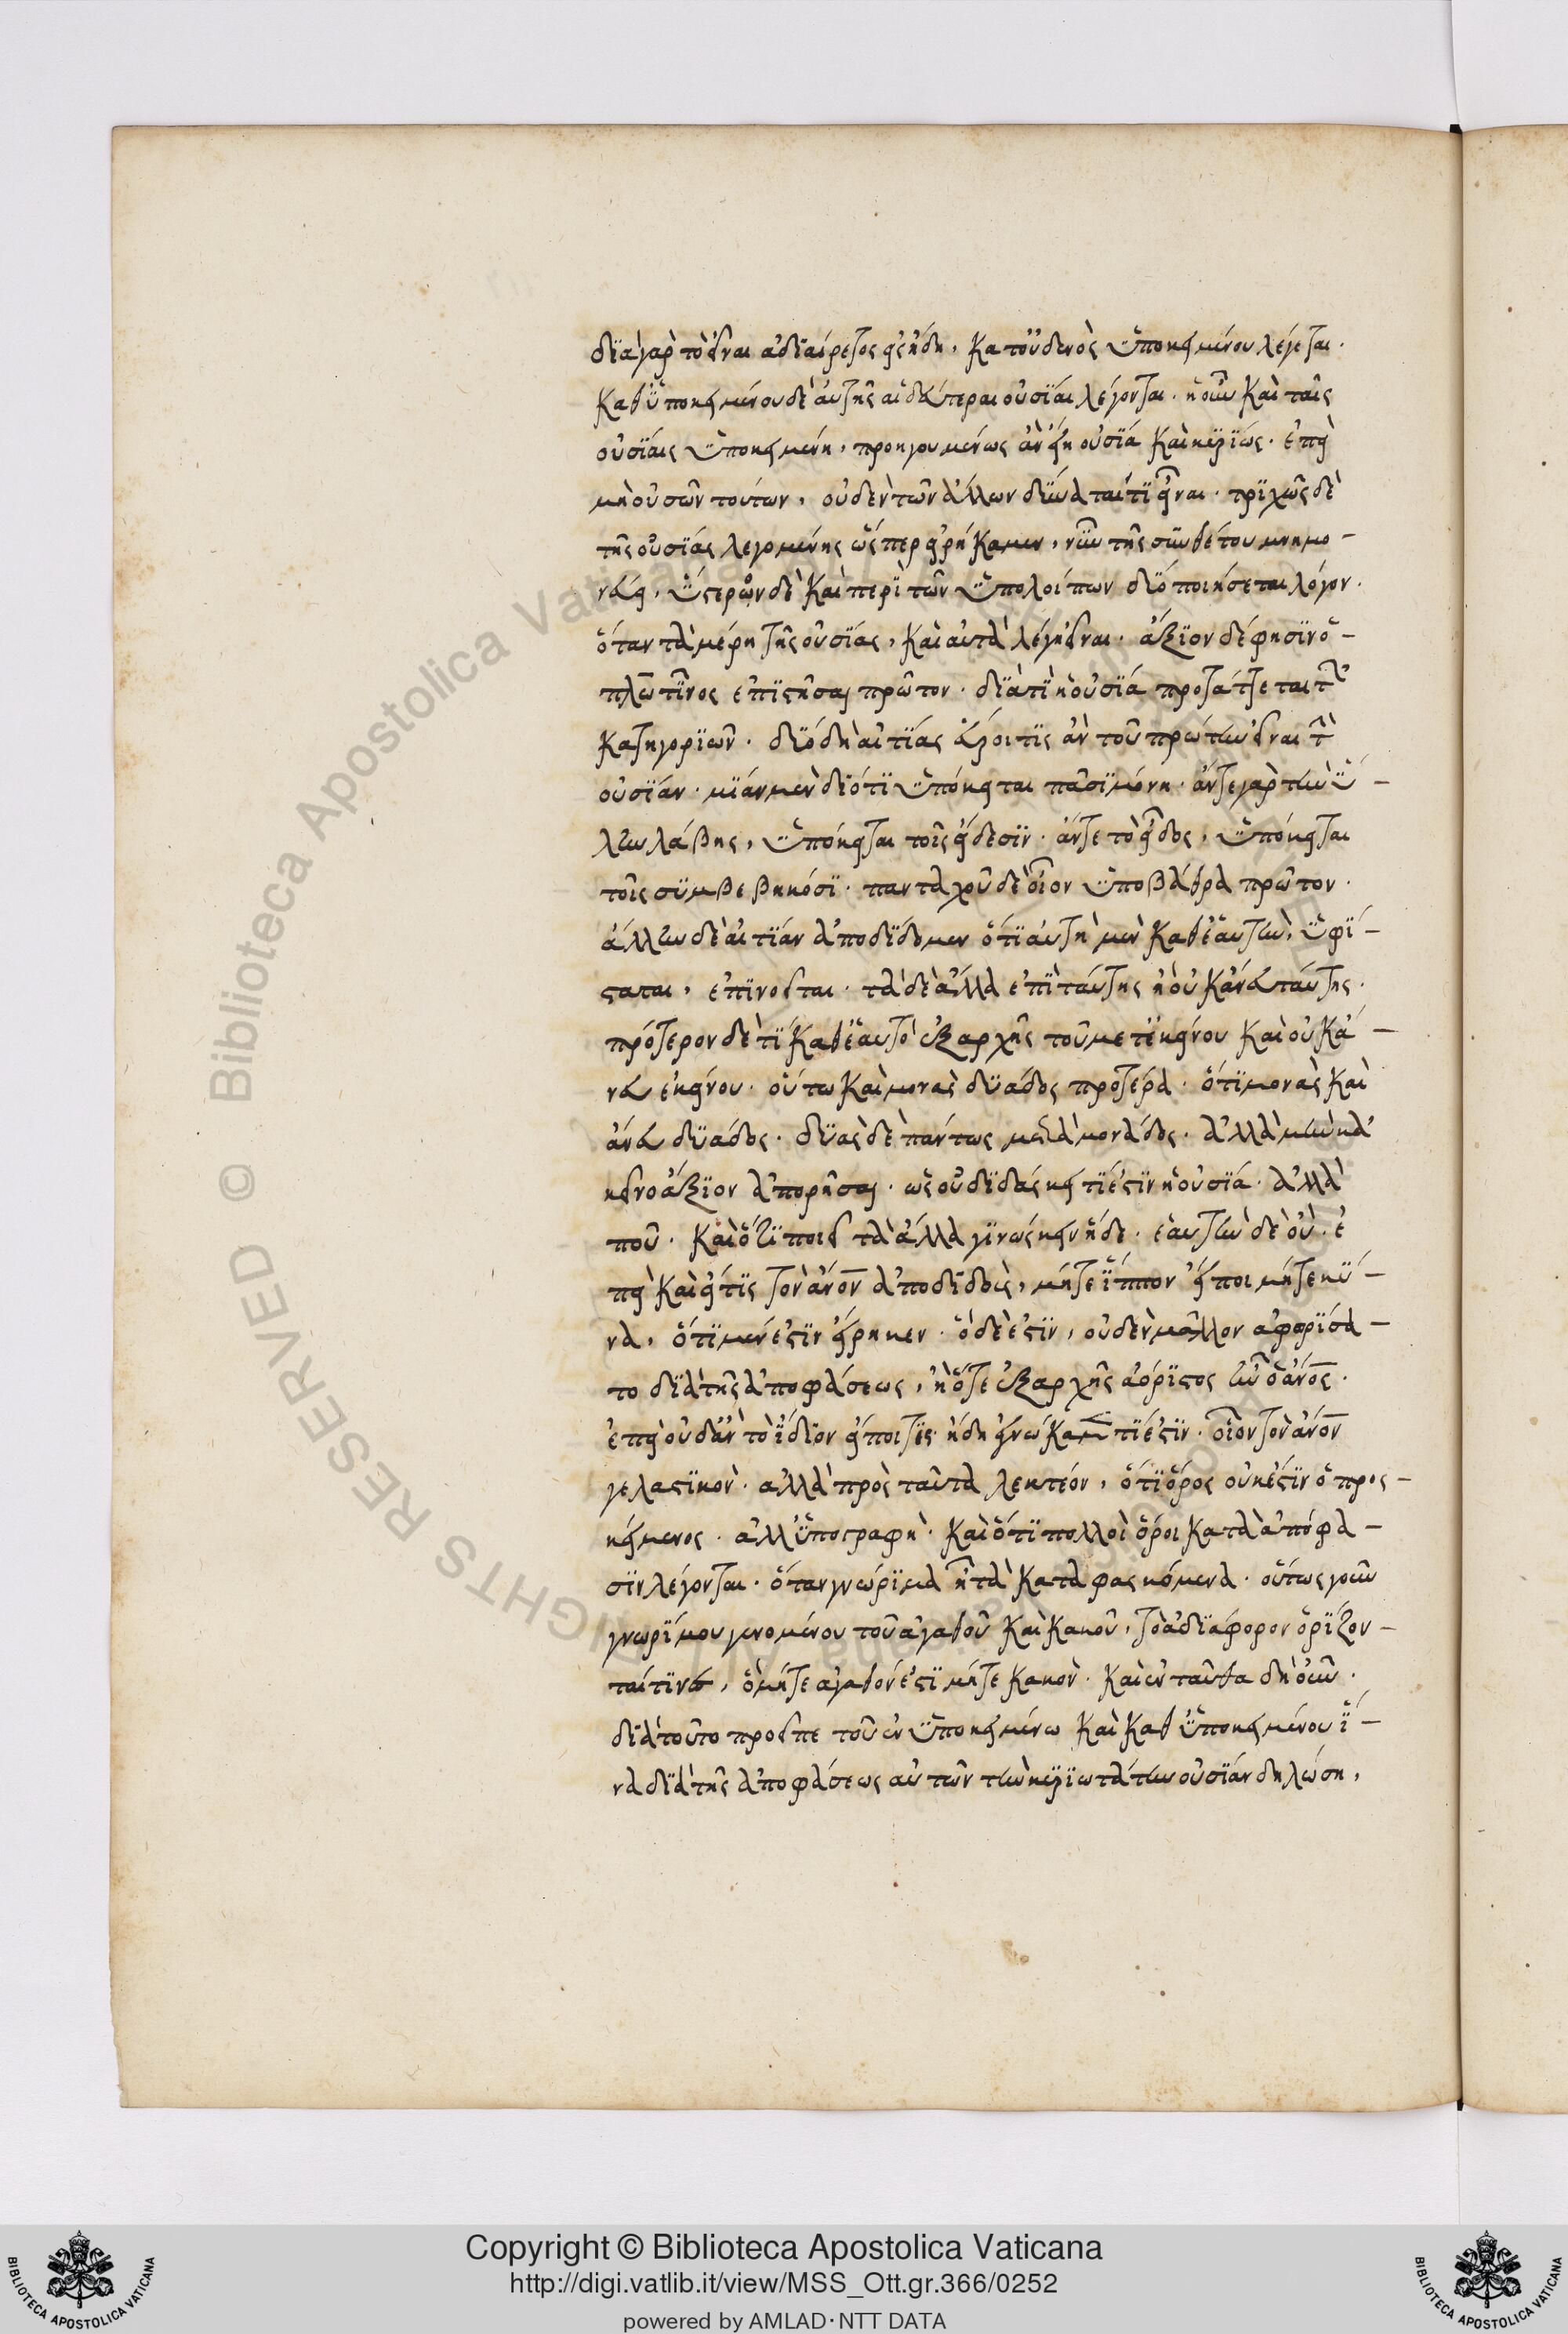 διὰ γὰρ τὸ εἶναι ἀδιαίρετος εἰς εἴδη, κατ' οὐδενὸς ὑποκειμένου λέγεται.
καθ' ὑποκειμένου δὲ αὐτῆς αἱ δεύτεραι οὐσίαι λέγονται. ἡ οὖν καὶ ταῖς
οὐσίαις ὑποκειμένη, προηγουμένως ἂν εἴη οὐσία καὶ κυρίως. ἐπεὶ
μὴ οὐσῶν τούτων, οὐδὲν τῶν ἄλλων δύναταί τι εἶναι. τριχῶς δὲ
τῆς οὐσίας λεγομένης ὥσπερ εἰρήκαμεν, νῦν τῆς συνθέτου μνημο-
νεύει, ὕστερον δὲ καὶ περὶ τῶν ὑπολοίπων δύο ποιήσεται λόγον.
ὅταν τὰ μέρη τῆς οὐσίας, καὶ αὐτὰ λέγῃ εἶναι. ἄξιον δέ φησιν ὁ
πλωτῖνος ἐπιστῆσαι πρῶτον. διὰ τί ἡ οὐσία προτάττεται τῶν
κατηγοριῶν. δύο δὴ αἰτίας εὕροι τις ἂν τοῦ πρώτην εἶναι τὴν
οὐσίαν. μίαν μὲν διότι ὑπόκειται πᾶσι μόνη. ἄν τε γὰρ τὴν ὕ-
λην λάβῃς, ὑπόκειται τοῖς εἴδεσιν. ἄν τε τὸ εἶδος, ὑπόκειται
τοῖς συμβεβηκόσι. πανταχοῦ δὲ οἷον ὑποβάθρα πρῶτον.
ἄλλην δὲ αἰτίαν ἀποδίδομεν ὅτι αὐτὴ μὲν καθ' ἑαυτὴν, ὑφί-
σταται, ἐπινοεῖται. τὰ δὲ ἄλλα ἐπὶ ταύτης ἢ οὐκ ἄνευ ταύτης.
πρότερον δὲ τὶ καθ' ἑαυτὸ ἐξαρχῆς τοῦ μετ' ἐκείνου καὶ οὐκ ἄ-
νευ ἐκείνου. οὕτω καὶ μονὰς δυάδος προτέρα. ὅτι μονὰς καὶ
ἄνευ δυάδος. δυὰς δὲ πάντως μετὰ μονάδος. ἀλλὰ μὴν κἀ
κεῖνο ἄξιον ἀπορῆσαι. ὡς οὐ διδάσκει τί ἐστιν ἡ οὐσία. ἀλλὰ
ποῦ. καὶ ὅτι ποιεῖ τὰ ἄλλα γινώσκειν ἥδε. ἑαυτὴν δὲ οὐ. ἐ
πεὶ καὶ εἴ τις τὸν ἄνον ἀποδιδοὺς, μήτε ἵππον εἴποι μήτε κύ-
να, ὅτι μέν ἐστιν εἴρηκεν. ὃ δὲ ἐστὶν, οὐδὲν μᾶλλον ἀφωρίσα-
το διὰ τῆς ἀποφάσεως, ἢ ὅτε ἐξαρχῆς ἀόριστος ἦν ὁ ἄνος.
ἐπεὶ οὐδ' ἂν τὸ ἴδιον εἴποι τὶς ἤδη ἐγνώκαμεν τί ἐστιν. οἷον τὸν ἄνον
γελαστικόν. ἀλλὰ πρὸς ταῦτα λεκτέον, ὅτι ὅρος οὐκ ἔστιν ὁ προς-
κείμενος. ἀλλ' ὑπογραφή. καὶ ὅτι πολλοὶ ὅροι κατὰ ἀπόφα-
σιν λέγονται. ὅταν γνώριμα ᾖ τὰ καταφασκόμενα. οὕτως γοῦν
γνωρίμου γενομένου τοῦ ἀγαθοῦ καὶ κακοῦ, τὸ ἀδιάφορον ὁρίζον-
ταί τινες, ὃ μήτε ἀγαθόν ἐστι μήτε κακὸν. καὶ ἐνταῦθα δὴ οὖν.
διὰ τοῦτο προεῖπε τοῦ ἐν ὑποκειμένω καὶ καθ' ὑποκειμένου ἵ-
να διὰ τῆς ἀποφάσεως αὐτῶν τὴν κυριωτάτην οὐσίαν δηλώση,
Copyright © Biblioteca Apostolica Vaticana
http://digi.vatlib.it/view/MSS_Ott.gr.366/0252
powered by AMLAD·NTT DATA